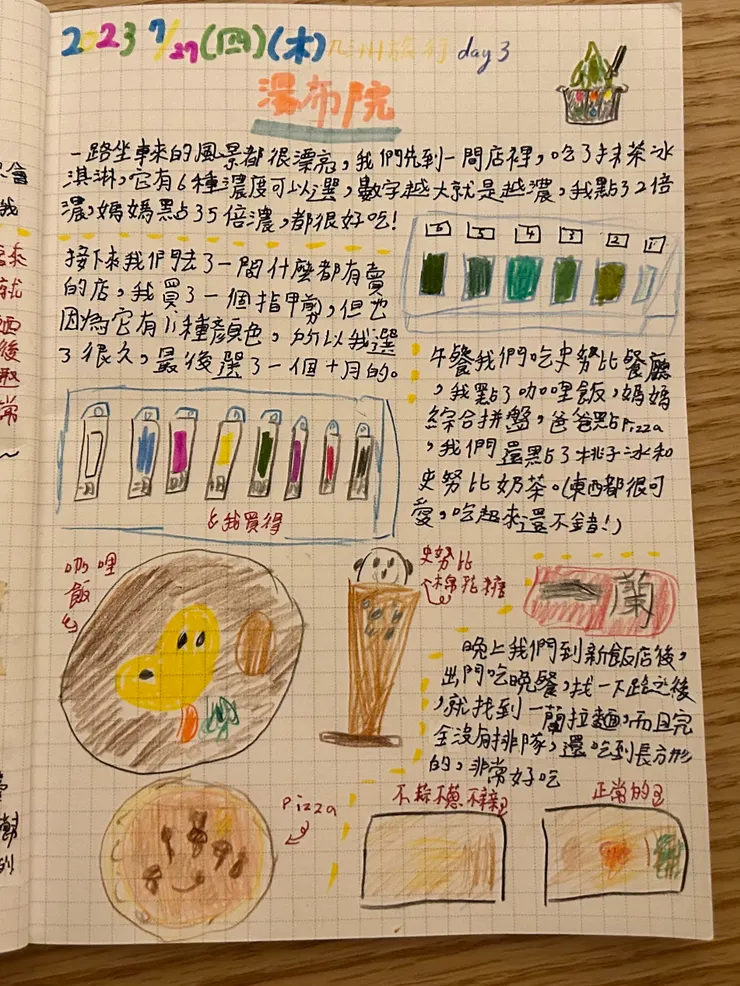 2023 7/27(四)(木)九州旅行 day 3
湯布院
一路坐車來的風景都很漂亮,我們先到一間店裡,吃了抹茶冰
淇淋,它有6種濃度可以選,數字越大就是越濃,我點了2倍
濃,媽媽點了5倍濃,都很好吃!
6 5 4 3 2 1
接下來我們去了一間什麼都有賣
的店,我買了一個指甲剪,但也
因為它有11種顏色,所以我選
了很久,最後選了一個十月的。
我買得
午餐我們吃史努比餐廳
,我點了咖哩飯,媽媽
綜合拼盤,爸爸點pizza
,我們還點了桃子冰和
史努比奶茶。(東西都很可
愛,吃起來還不錯!)
咖哩
飯
史努比
棉花糖
一蘭
晚上我們到新飯店後,
出門吃晚餐,找一下路之後
,就找到一蘭拉麵,而且完
全沒有排隊,還吃到長方形
的,非常好吃
pizza
不蒜不蔥不辣
正常的